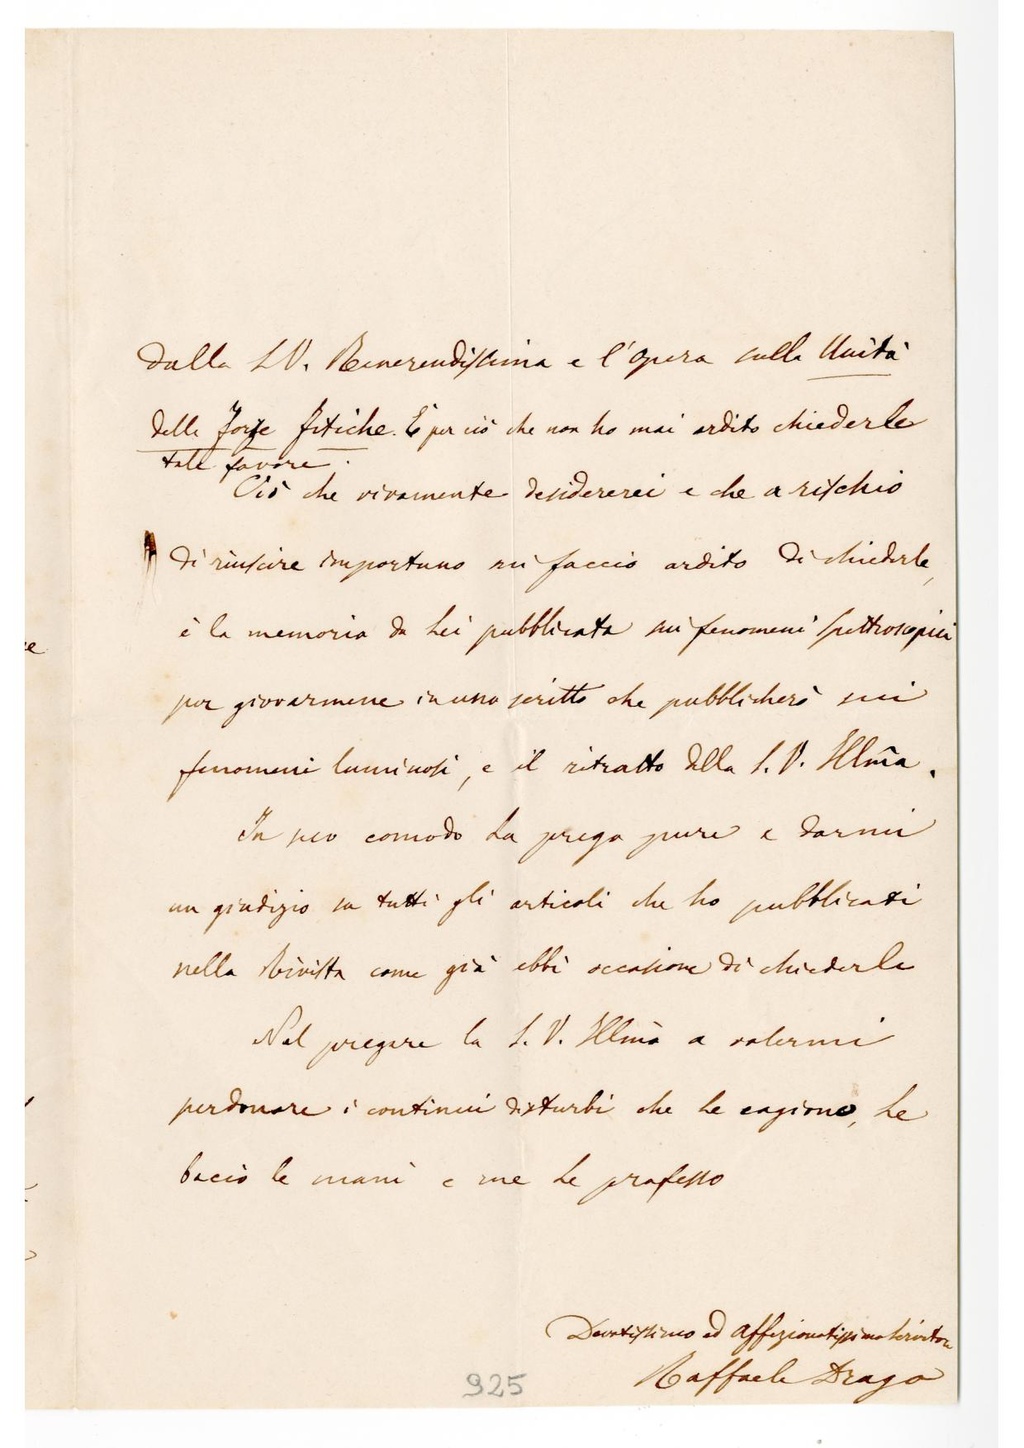 dalla S. V. Reverendissima e l'opera sulla Unità
delle Forze fisiche. È per ciò che non ho mai ardito chiederle
tale favore.
Ciò che vivamente desidererei e che a rischio
di riuscire importuno mi faccio ardito di chiederle,
è la memoria da Lei pubblicata sui fenomeni spettroscopici
per giovarmene in uno scritto che pubblicherò sui
fenomeni luminosi, e il ritratto della S. V. Illma.
In suo comodo La prego pure a darmi
un giudizio su tutti gli articoli che ho pubblicati
nella Rivista come già ebbi occasione di chiederle
Nel pregare la S. V. Illma a volermi
perdonare i continui disturbi che Le cagiono, Le
bacio le mani e me Le professo
Devotissimo ed Affezionatissimo Servitore
Raffaele Drago
925